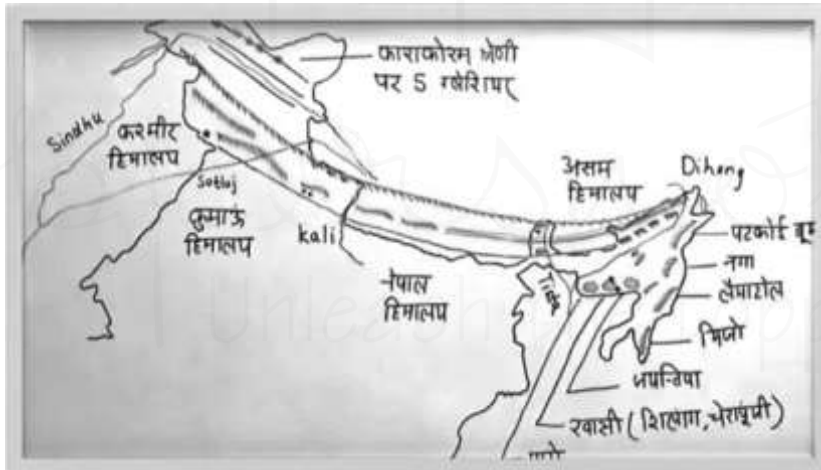 काराकोरम श्रेणी
पर 5 ग्लेशियर
Sindhu
कश्मीर
हिमालय
Satluj
कुमाऊं
हिमालय
Kali
नेपाल
हिमालय
असम
हिमालय
Dihang
पटकोई बूम
नगा
लैमाटोल
मिजो
Tista
जयन्तिया
खासी (शिलांग, चेरापूंजी)